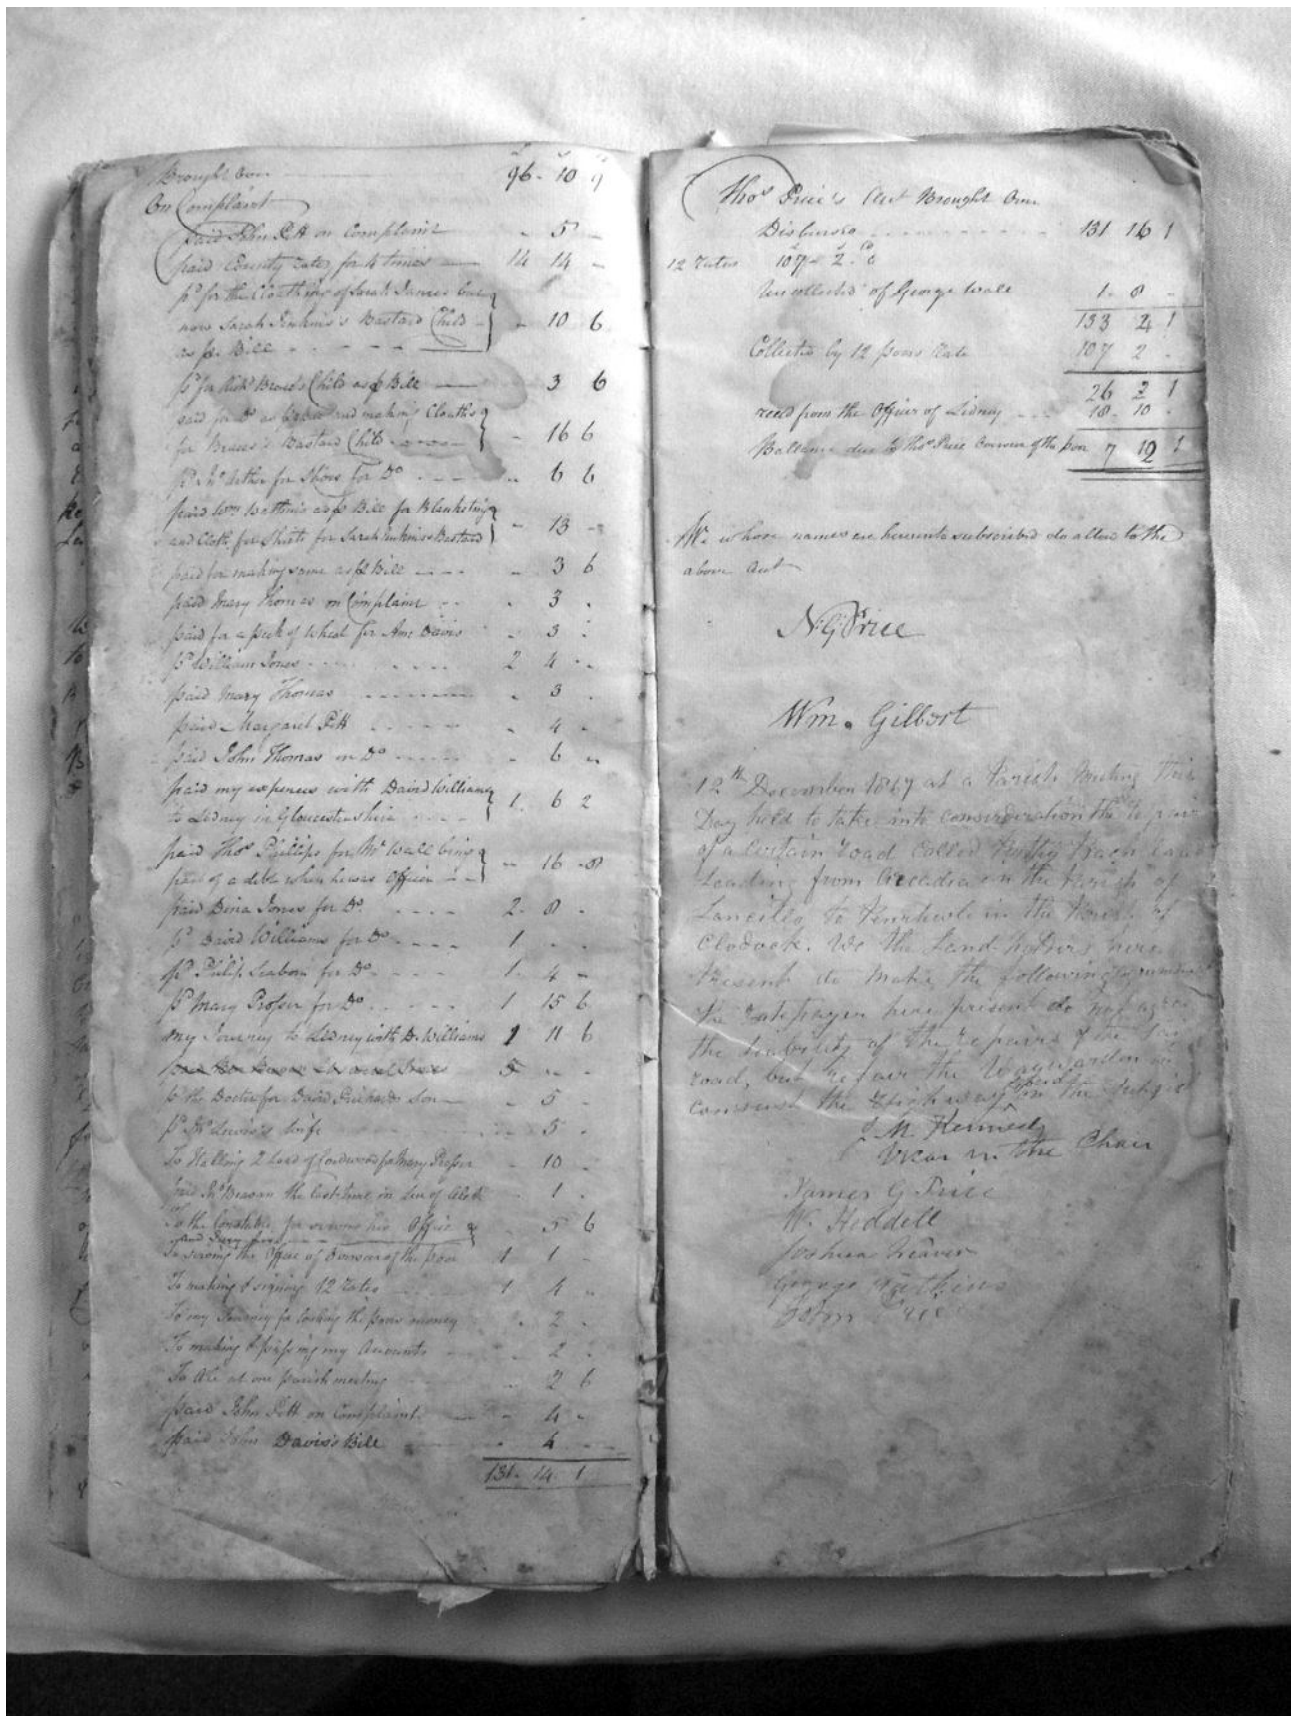 Brought Over 96 - 10 9
On Complaint
paid John Pitt on Complaint - 5 -
paid County rates for 4 times 14 14 -
pd for the Cloathing of Sarah
now Sarah Jenkins's Bastard Child - 10 6
as pr Bill
pd for Richd Child as pr Bill 3 6
paid for Do and making Cloaths
for Bastard Child - 16 6
pd for Shoes for Do - 6 6
paid Wm Watkins as pr Bill for Blanketing
and Cloth for Shirts for Sarah Jenkins Bastard - 13 -
paid for making same as pr Bill - 3 6
paid Mary Thomas on Complaint - 3 -
paid for a peck of Wheat for Ann Davis - 3 -
pd William Jones 2 4 -
paid Mary Thomas - 3 -
paid Margaret Pitt - 4 -
paid John Thomas on Do - 6 -
paid my expences with David Williams
to Lidney in Gloucestershire 1 6 2
paid Thos Phillips for Mr Wall being
part of a debt when he was Officer - 16 - 8
paid Dina Jones for Do 2 - 8 -
pd David Williams for Do 1 - -
pd Philip Seaborn for Do 1 - 4 -
pd Mary Prosser for Do 1 15 6
my Journey to Lidney with D. Williams 1 11 6
5 - -
pd the Doctor for David Prichards Son - 5 -
pd Lewis's wife - 5 -
To Halling 2 load of Cordwood for Mary Prosser - 10 -
paid Jno Beavan the last time in lieu of - 1 -
To the Constable for serving his Office
- 5 6
To serving the Office of Overseer of the poor 1 1 -
To making & signing 12 rates 1 4 -
To my Journey for the poors money - 2 -
To making & passing my Accounts - 2 -
To Ale at one parish meeting - 2 6
paid John Pitt on Complaint - 4 -
paid John Davis's Bill - 4 -
131 - 14 - 1
Thos Price's Acct Brought Over
Disburse 131 16 1
12 rates 107 - 2 - 0
Uncollected of George Wall 1 - 8 -
133 4 1
Collected by 12 poors Rate 107 2 -
26 2 1
recd from the Officer of Lidney 18 - 10 -
Ballance due to Thos Price Overseer of the poor 7 12 1
We whose names are hereunto subscribed do allow to the
above Acct
N. G. Price
Wm. Gilbert
12th December at a Parish Meeting this
Day held to take into consideration the repairs
of a certain road called
Leading from Arcadia in the Parish of
Lancillo to in the Parish of
Clodock. We the Land holders here
present do make the following
the ratepayers here present do not agree
the liability of the repairs of the said
road, but the Waywarden
the Highway Board
J M Kennedy
Vicar in the Chair
James G Price
W. Heddell
Joshua Weaver
George Watkins
John Price